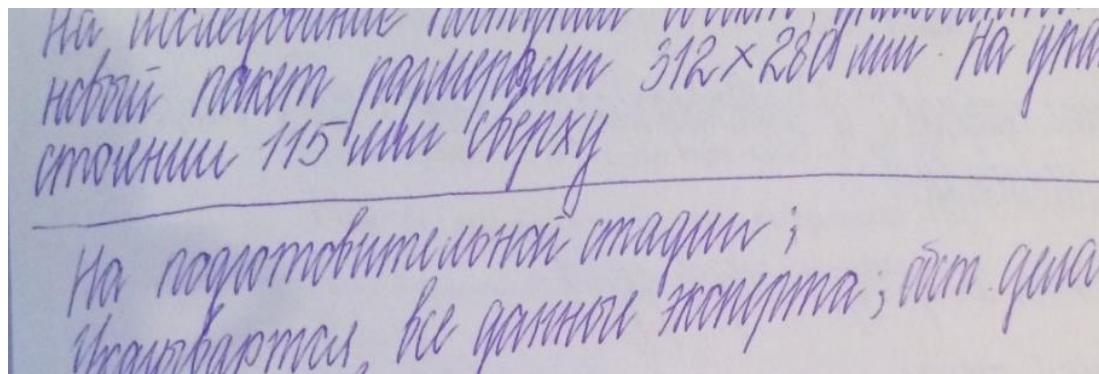 На исследование поступил объект, упакованн
новый пакет размерами 312×280 мм. На упа
стоянии 115 мм сверху
На подготовительной стадии;
Указываются все данные эксперта; обст. дела